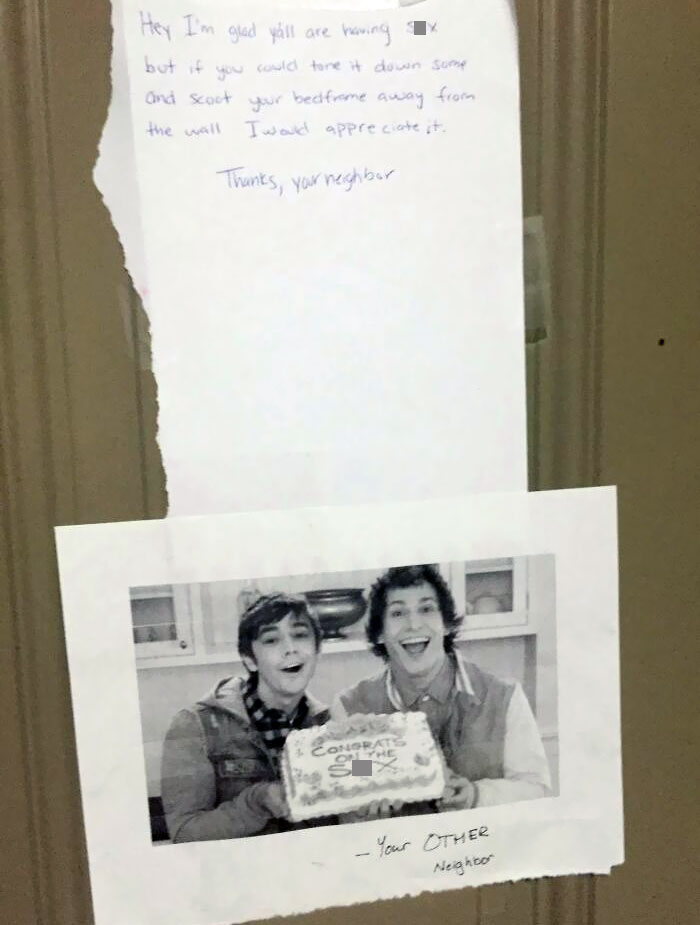 Hey I'm glad y'all are having S■x
but if you could tone it down some
and scoot your bedframe away from
the wall I would appreciate it.
Thanks, your neighbor
CONGRATS
ON THE
S■X
- Your OTHER
Neighbor